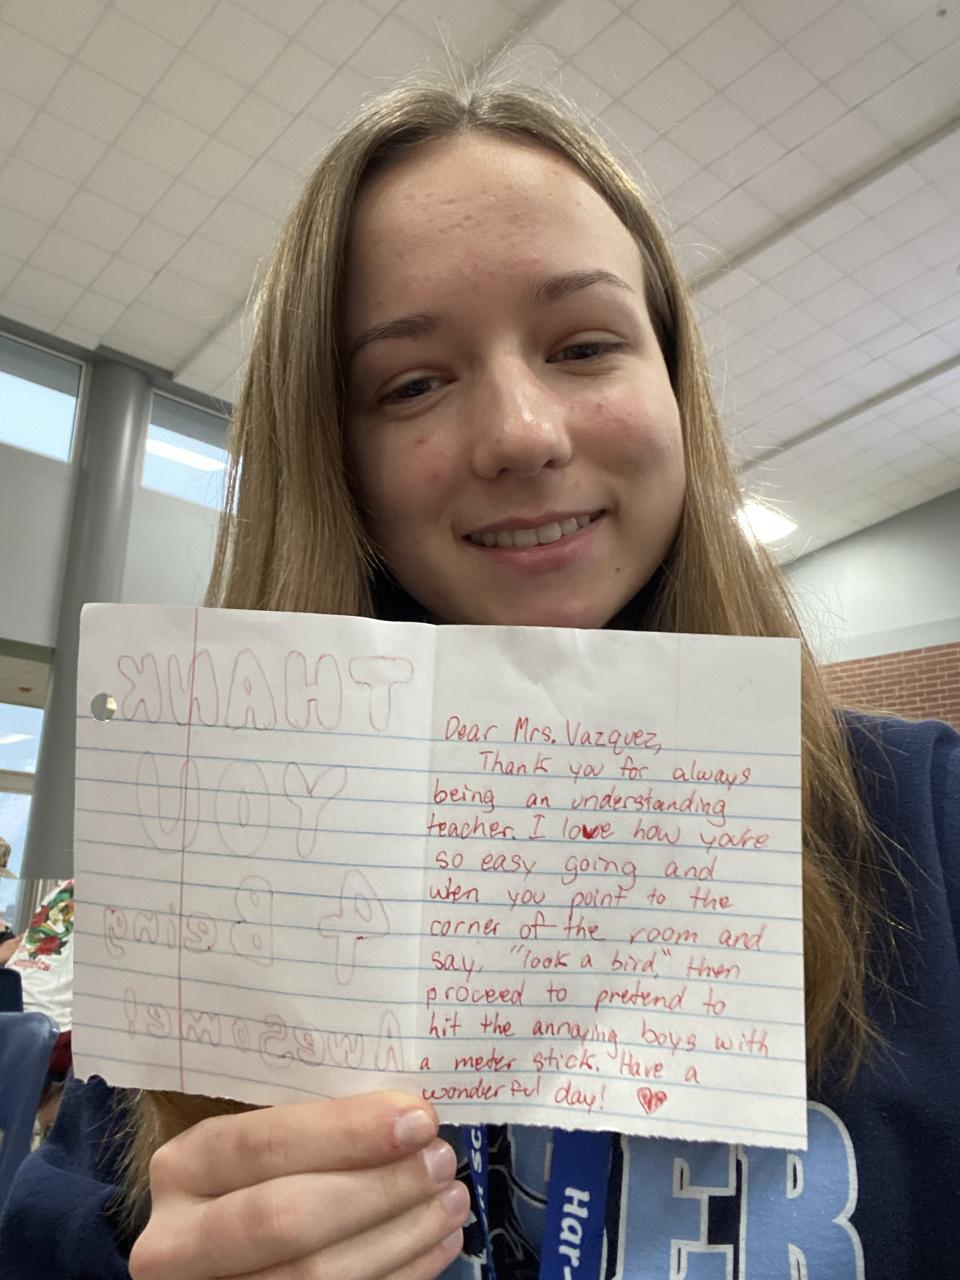 THANK
YOU
4 Being
Awesome!
Dear Mrs. Vazquez,
Thank you for always
being an understanding
teacher. I love how you're
so easy going and
when you point to the
corner of the room and
say, "look a bird," then
proceed to pretend to
hit the annoying boys with
a meter stick. Have a
wonderful day!
Har-
ER